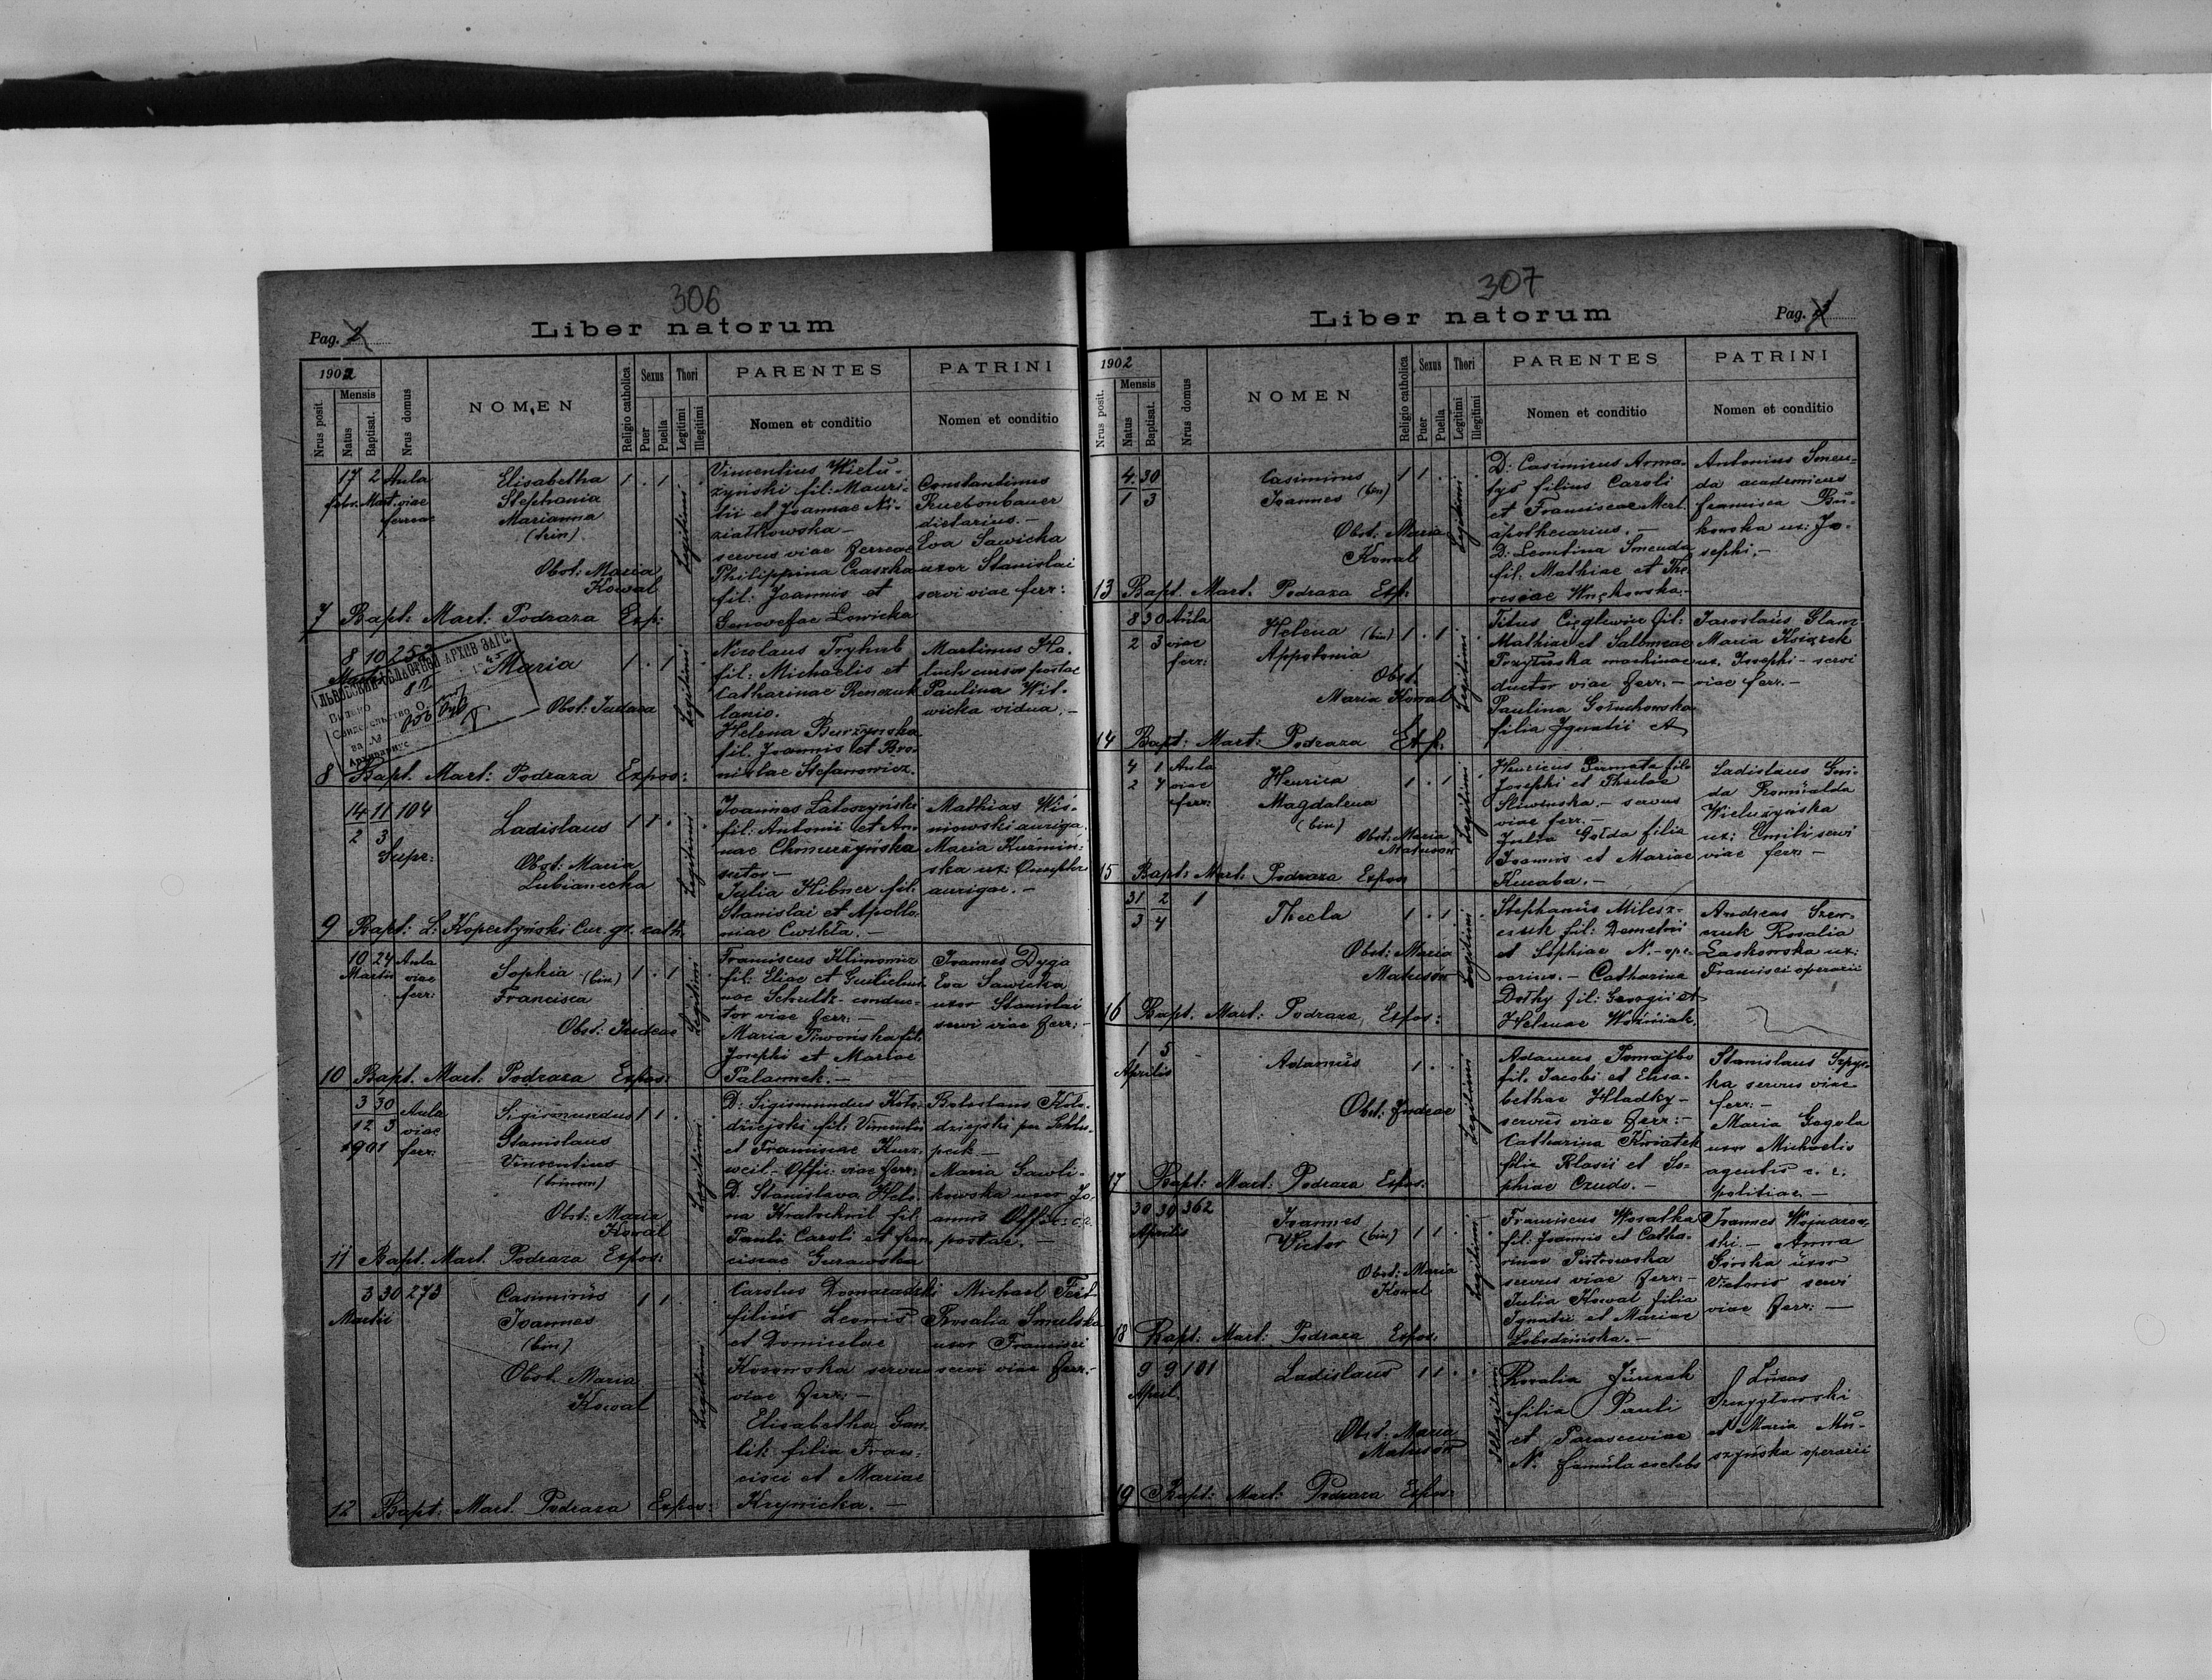 306
Liber natorum
Pag. 2
1902
Mensis
Nrus posit.
Natus
Baptisat.
Nrus domus
NOMEN
Religio catholica
Sexus
Puer
Puella
Thori
Legitimi
Illegitimi
PARENTES
Nomen et conditio
PATRINI
Nomen et conditio
17 2 Aula
febr. Mart. viae
ferreae
Elisabetha
Stephania
Marianna
(trin)
Obst: Maria
Kowal
1 . 1 .
Legitimi
Vincentius Wielu-
żyński fil: Mauri-
tii et Joannae Ni-
ziałkowska -
servus viae ferreae
Philippina Czaszka
fil: Joannis et
Genovefae Lowicka
Constantinus
dietarius. -
Eva Sawicka
uxor Stanislai
servi viae ferr:
7 Bapt: Mart: Podraza Exp:
8 10 252
Martii
Maria
Obst: Judaea
1 . 1 .
Legitimi
ЛЬВОВСКИЙ ОБЛАСТНОЙ АРХИВ ЗАГС.
Выдано
Свидетельство О
за №
Архивариус
Nicolaus Tryhub
fil: Michaelis et
Catharinae Renczuk
lanio.
Helena Burzyńska
fil. Joannis et Bro-
nislae Stefanowicz.
Martinus Ha-
cursor postae
Paulina Wit-
wicka vidua. -
8 Bapt. Mart: Podraza Expos:
14 11 104
2 3
Supr:
Ladislaus
Obst: Maria
Lubianecka
1 1 . .
Legitimi
Joannes Latoszyński
fil: Antonii et An-
nae Chomurzyńska
sutor -
Julia Hibner fil:
Stanislai et Apollo-
niae Cwikła. -
Mathias Wiś-
niowski auriga.
Maria Kuzmin-
ska ux: Onuphri
aurigae. -
9 Bapt: L: Kopertyński Cur. gr. cath:
10 24 Aula
Martii viae
ferr:
Sophia (bin)
Francisca
Obst: Judeae
1 . 1 .
Legitimi
Franciscus Klimowicz
fil: Eliae et Guilielmi-
nae Schultz - conduc-
tor viae ferr: -
Maria Piwońska fil:
Josephi et Mariae
Palamek. -
Joannes Dyga
Eva Sawicka
uxor Stanislai
servi viae ferr: -
10 Bapt. Mart: Podraza Expos:
3 30 Aula
12 3 viae
1901 ferr:
Sigismundus
Stanislaus
Vincentius
(trinom)
Obst: Maria
Kowal
1 1 . .
Legitimi
D: Sigismundus Koło-
dziejski fil: Vincentii
et Franciscae Kurz-
weil - Offic: viae ferr:
D. Stanislava Hele-
na Kratochwil fil:
Pauli Caroli et Fran-
ciscae Gurawska
Boleslaus Koło-
dziejski
Maria Gawli-
kowska uxor Jo-
annis Offic: c. r.
postae. -
11 Bapt. Mart. Podraza Expos:
3 30 273
Martii
Casimirus
Joannes
(bin)
Obst. Maria
Kowal
1 1 . .
Legitimi
Carolus Domaradzki
filius Leonis
et Domicelae
Kosowska servus
viae ferr: -
Elisabetha Gaw-
lik filia Fran-
cisci et Mariae
Krynicka. -
Michael Feit
Rosalia Smulska
uxor Francisci
servi viae ferr: -
12 Bapt: Mart. Podraza Expos:
307
Liber natorum
Pag. 3
1902
Mensis
Nrus posit.
Natus
Baptisat.
Nrus domus
NOMEN
Religio catholica
Sexus
Puer
Puella
Thori
Legitimi
Illegitimi
PARENTES
Nomen et conditio
PATRINI
Nomen et conditio
4 30
1 3
Casimirus
Joannes (bin)
Obst: Maria
Kowal
1 1 . .
Legitimi
D: Casimirus Arma-
tys filius Caroli
et Franciscae Mert
apothecarius. -
D: Leontina Smenda
fil: Mathiae et The-
resiae Wnękowska. -
Antonius Smen-
da academicus
Francisca Bu-
kowska ux: Jo-
sephi. -
13 Bapt. Mart. Podraza Exp:
8 30 Aula
2 3 viae
ferr:
Helena (bin)
Appolonia
Obst.
Maria Kowal
1 . 1 .
Legitimi
Titus Cięglewicz fil:
Mathiae et Salomeae
machinae
ductor viae ferr: -
Paulina Gołuchowska
filia Ignatii et
Jaroslaus Glanz
Maria Książek
ux. Josephi - servi
viae ferr: -
14 Bapt: Mart: Podraza Exp:
4 1 Aula
2 4 viae
ferr:
Henrica
Magdalena
(bin)
Obst: Maria
Matuson
1 . 1 .
Legitimi
Henricus fil:
Josephi et Theclae
Sliwinska. - servus
viae ferr: -
Julia Gołda filia
Joannis et Mariae
Kucaba. -
Ladislaus Gni-
da Romualda
Wielużyńska
ux: Emili servi
viae ferr: -
15 Bapt: Mart. Podraza Expos
31 2 1
3 4
Thecla
Obst: Maria
Matuson
1 . 1 .
Legitimi
Stephanus Milesz-
czuk fil: Demetrii
et Sophiae N. - ope-
rarius. - Catharina
Dołhy fil: Georgii et
Helenae Woźniak.
Andreas Szew-
czuk Rosalia
Laskowska ux:
Francisci operarii
16 Bapt. Mart: Podraza Expos:
1 5 -
Aprilis
Adamus
Obst: Judeae
1 . .
Legitimi
Adamus Pomajbo
fil. Jacobi et Elisa-
bethae Hladky -
servus viae ferr: -
Catharina Kwiatek
filia Blasii et So-
phiae Czudo. -
Stanislaus Szpyr-
ka servus viae
ferr: -
Maria Gogola
uxor Michaelis
agentis c. r.
politiae. -
17 Bapt: Mart: Podraza Expos:
30 30 362
Aprilis
Joannes
Victor (bin)
Obst: Maria
Kowal
1 1 . .
Legitimi
Franciscus Wosatka
fil: Joannis et Catha-
rinae Piotrowska
servus viae ferr: -
Julia Kowal filia
Ignatii et Mariae
Łobodzińska. -
Joannes Wojnarow-
ski. - Anna
Górska uxor
Victoris servi
viae ferr: -
18 Bapt: Mart: Podraza Expos:
9 9 101
April.
Ladislaus
Obst: Maria
Matuson
1 1 . .
Illegitimi
Rosalia Jurczak
filia Pauli
et Parasceviae
N. famula coelebs
Lucas
Szczygłowski
et Maria Mu-
szyńska operarii
19 Bapt: Mart: Podraza Expos: